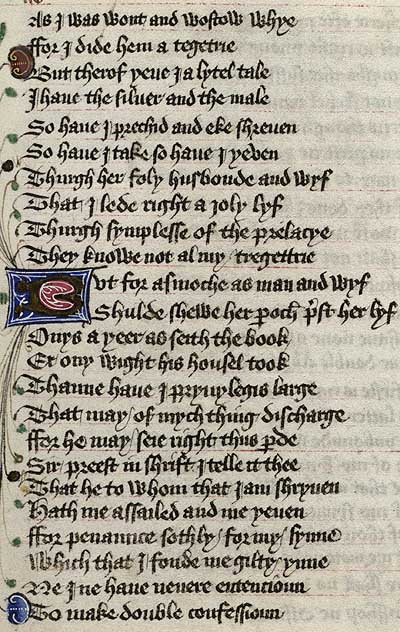 As I was wont and wostow whye
ffor I dide hem a tegetrie
But therof yeve I a lytel tale
I haue the siluer and the male
So haue I prechid and eke shreuen
So haue I take so haue I yeven
Thurgh her foly husbonde and wyf
That I lede right a joly lyf
Thurgh symplesse of the prelacye
They knowe not al my tregettrie
But for asmoche as man and wyf
Shulde shewe her poch pst her lyf
Onys a yeer as seith the book
Er ony wight his housel took
Thanne haue I pryuylegis large
That may of mych thing discharge
ffor he may seie right thus pde
Sir preest in shrift I telle it thee
That he to whom that I am shryuen
Hath me assailed and me yeuen
ffor penaunce sothly for my synne
Which that I fonde me gilty ynne
Ne I ne haue neuere entencioun
To make double confessioun